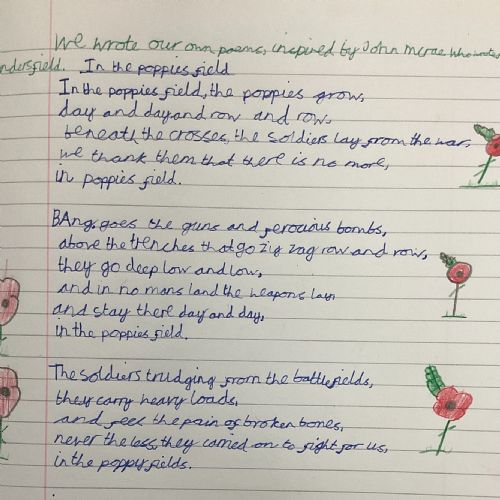 We wrote our own poems, inspired by John Mcrae who wrote
ndersfield. In the poppies field
In the poppies field, the poppies grow,
day and day and row and row,
beneath the crosses, the soldiers lay from the war,
we thank them that there is no more,
in poppies field.
BAng, goes the guns and ferocious bombs,
above the trenches that go zig zag row and row,
they go deep low and low,
and in no mans land the weapons lay,
and stay there day and day,
in the poppies field.
The soldiers trudging from the battlefields,
they carry heavy loads,
and feel the pain of broken bones,
never the less, they carried on to fight for us,
in the poppy fields.